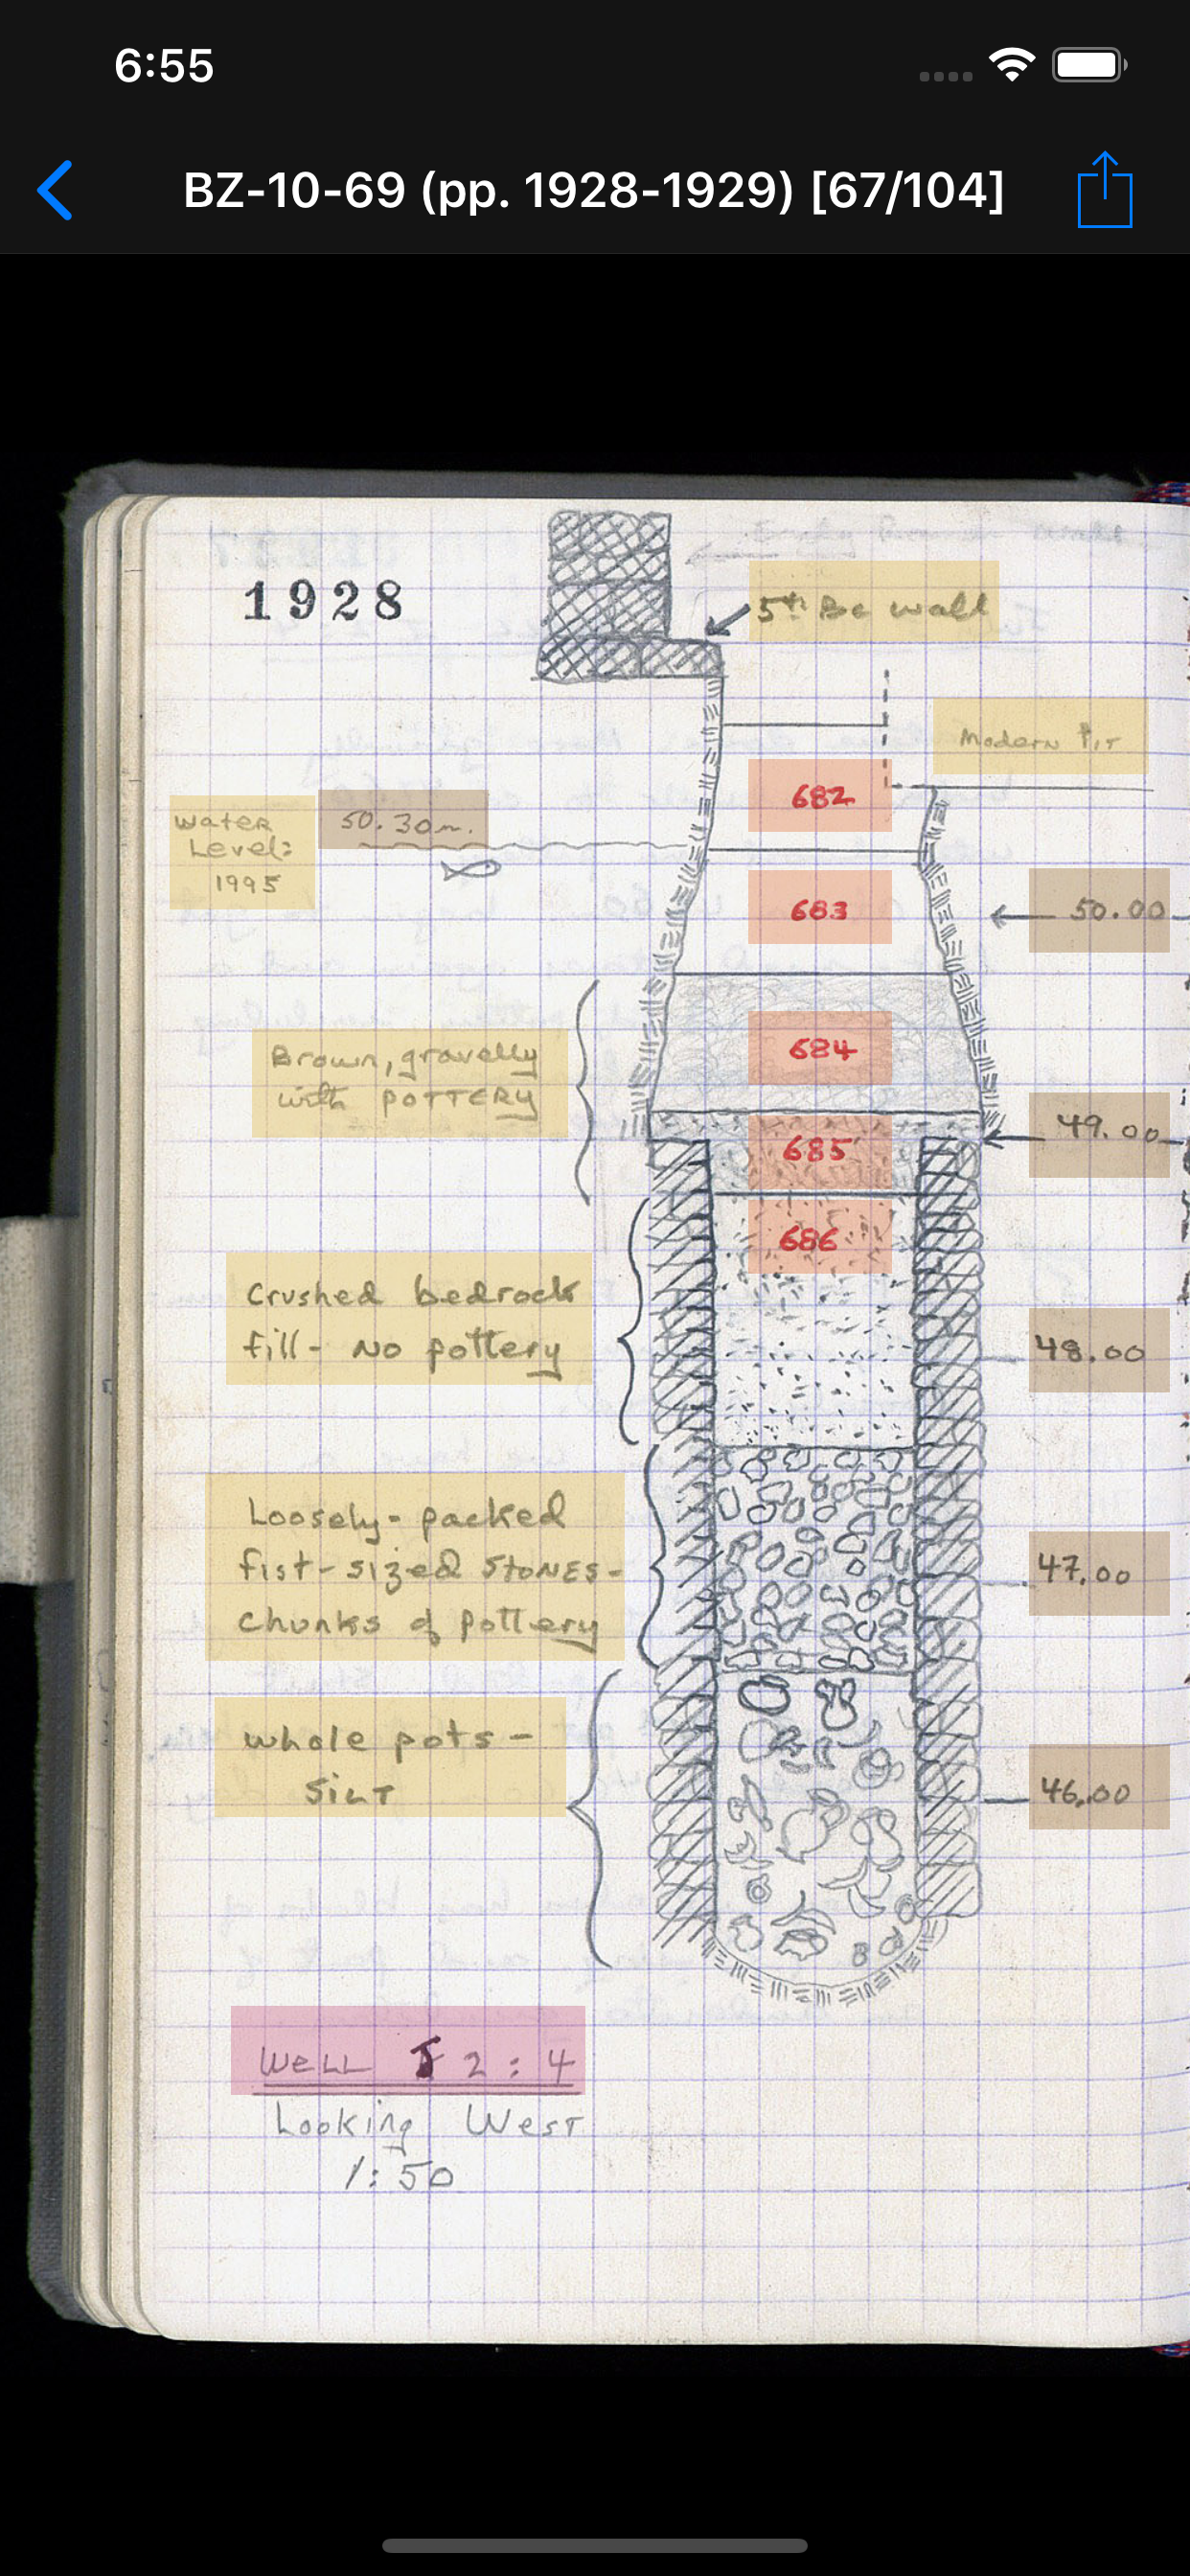 6:55
BZ-10-69 (pp. 1928-1929) [67/104]
1928
5th BC wall
Modern Pit
682
Water
Level:
1995
50.30m.
683
50.00
684
Brown, gravelly
with POTTERY
685
49.00
686
Crushed bedrock
fill - No pottery
48.00
Loosely-packed
fist-sized STONES-
Chunks of pottery
47.00
whole pots -
SILT
46.00
WELL J 2:4
Looking West
1:50